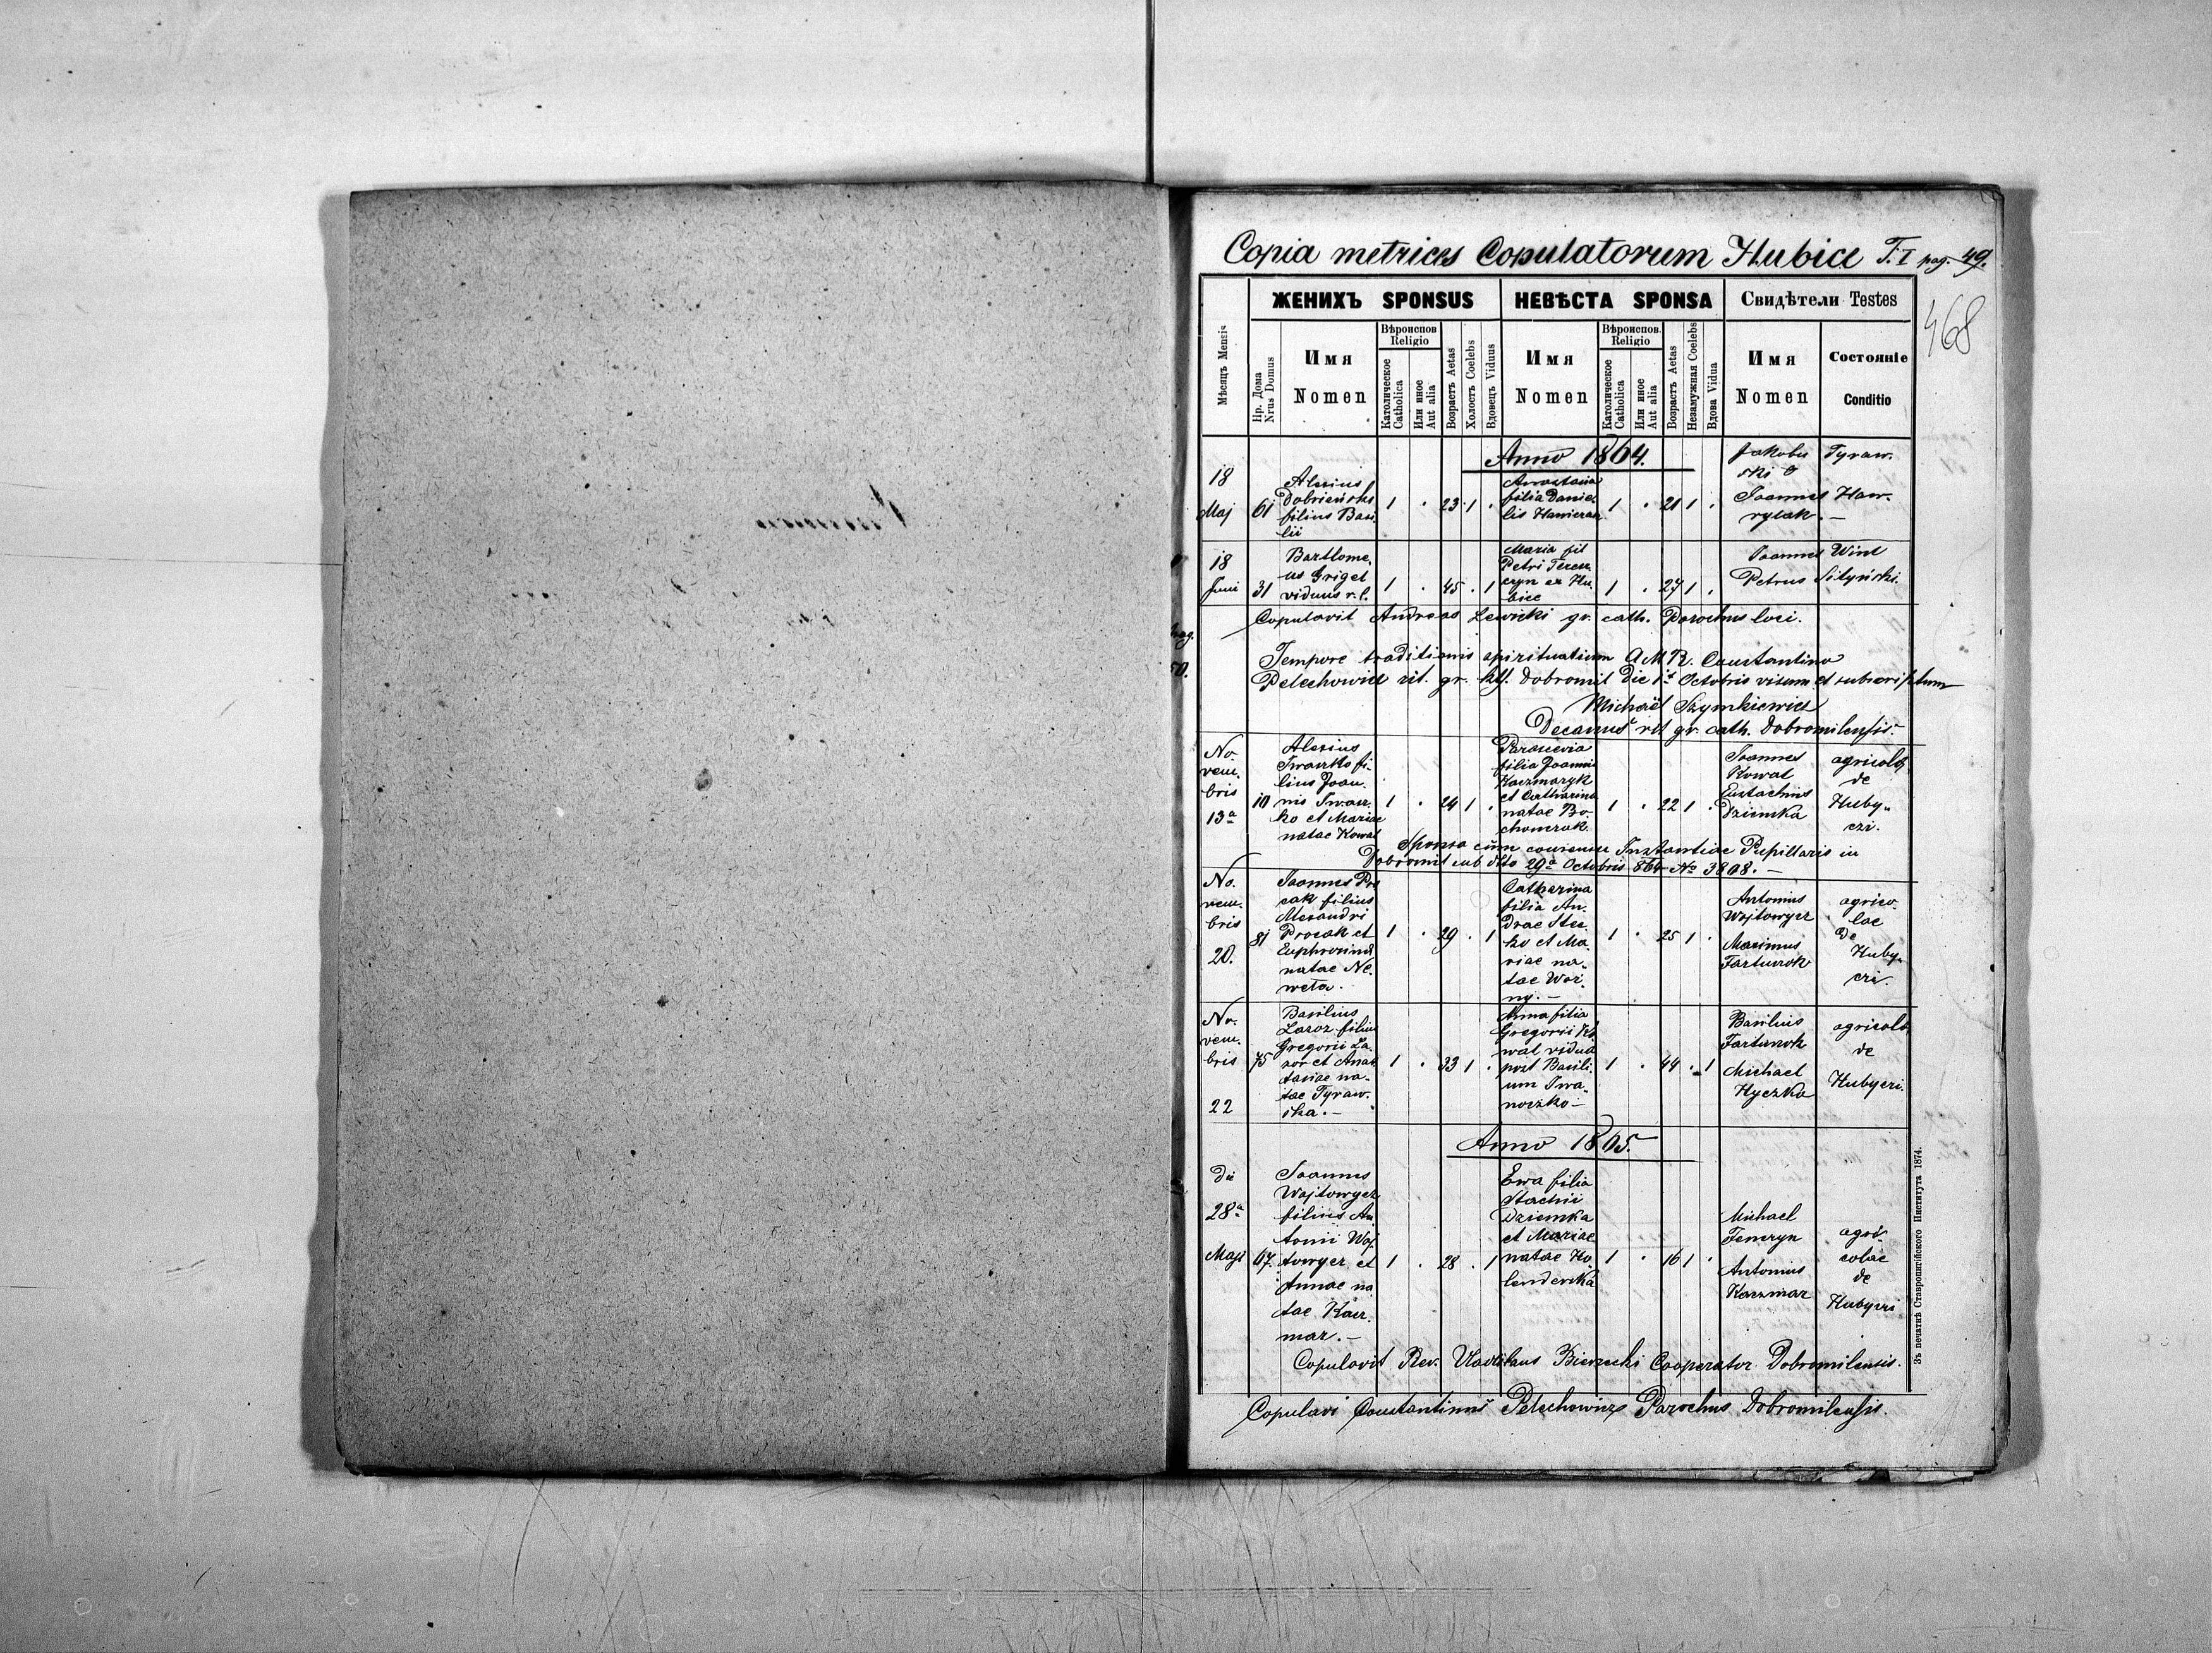 Copia metrices Copulatorum Hubice T. I pag. 49.
468
ЖЕНИХЪ SPONSUS
НЕВѢСТА SPONSA
Свидѣтели Testes
Мѣсяцъ Mensis
Нр. Дома
Nrus Domus
Имя
Nomen
Вѣроиспов
Religio
Католическое
Catholica
Или иное
Aut alia
Возрастъ Aetas
Холостъ Coelebs
Вдовецъ Viduus
Имя
Nomen
Вѣроиспов.
Religio
Католическое
Catholica
Или иное
Aut alia
Возрастъ Aetas
Незамужная Coelebs
Вдова Vidua
Имя
Nomen
Состояніе
Conditio
Anno 1864.
18
Maj
61
Alexius
Dobrieński
filius Basi
lii
1 . 23 1 .
Anastasia
filia Danie
lis
1 . 21 1 .
Jakobus Tyraw-
ski &
Joannes Haw-
rylak. —
18
Juni
31
Bartlome,
us Griget
viduus r. l.
1 . 45 . 1
Maria fil
Petri
ex Hu
bice
1 . 27 1 .
Joannes Wint
Petrus
Copulavit Andreas Lewicki gr. cath. Parochus loci.
pag.
50.
Tempore traditionis spiritualium A. M. R. Constantino
Pelechowicz rit. gr. Dobromil Die 1a Octobris visum et subscriptum
Michaël Szymkiewicz
Decanus rit gr. cath. Dobromilensis.
No.
vem.
bris
13a
10
Alexius
Iwaszko fi-
lius Joan.
nis Iwasz.
ko et Mariae
natae Kowal
1 . 24 1 .
Parascevia
filia Joannis
Kaczmaryk
et Catharina
natae Bo-
chonczak.
1 . 22 1 .
Joannes
Kowal
Eustachius
Dziemka
agricolae
de
Huby-
czi.
Sponsa cum consensu Instantiae Pupillaris in
Dobromil sub dtto 29a Octobris 864 No 3808. —
No.
vem.
bris
20.
81
Joannes Pro
cak filius
Alexandri
Procak et
Euphrosina
natae Ne.
weta.
1 . 29 . 1
Catharina
filia An.
dreae Stec.
ko et Ma.
riae na-
tae Woź.
ny. —
1 . 25 1 .
Antonius
Wojtowycz
Maximus
Fartuszok
agrico.
lae
de
Huby-
czi.
No.
vem.
bris
22
75
Basilius
Lazor filius
Gregorii La.
zor et Anas
tasiae na-
tae Tyraw.
ska. —
1 . 33 1 .
Anna filia
Gregorii Ko
wal vidua
post Basili.
um Iwa-
noczko —
1 . 44 . 1
Basilius
Fartuszok
Michael
Hyczka
agricolae
de
Hubyczi.
Anno 1865.
Die
28a
Maji
67.
Joannes
Wojtowycz
filius An
tonii Woj
towycz et
Annae na
tae Kacz.
mar. —
1 . 28 . 1
Ewa filia
Stachii
Dziemka
et Mariae
natae Ho.
lenderska
1 . 16 1 .
Michael
Fenczyn
Antonius
Kaczmar
agri-
colae
de
Hubyczi
Copulavit Rev. Vladislaus Bierzecki Cooperator Dobromilensis.
Copulavi Constantinus Pelechowicz Parochus Dobromilensis.
Зъ печатнѣ Ставропигійского Института 1874.